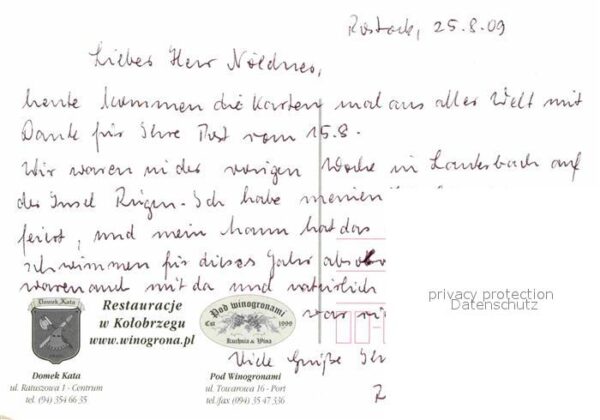 Rostock, 25.8.09
Lieber Herr Nöldner,
heute kommen die Karten mal aus aller Welt mit
Dank für Ihre Post vom 15.8.
Wir waren in der vorigen Woche in Lauterbach auf
der Insel Rügen. Ich habe meinen
feiert, und mein Mann hat das
schwimmen für dieses Jahr
waren auch mit da und natürlich
war
Viele Grüße
privacy protection
Datenschutz
Domek Kata
Restauracje
w Kołobrzegu
www.winogrona.pl
Pod winogronami
1999
Kuchnia & Wina
Domek Kata
ul. Ratuszowa 1 - Centrum
tel. (94) 354 66 35
Pod Winogronami
ul. Towarowa 16 - Port
tel./fax (094) 35 47 336